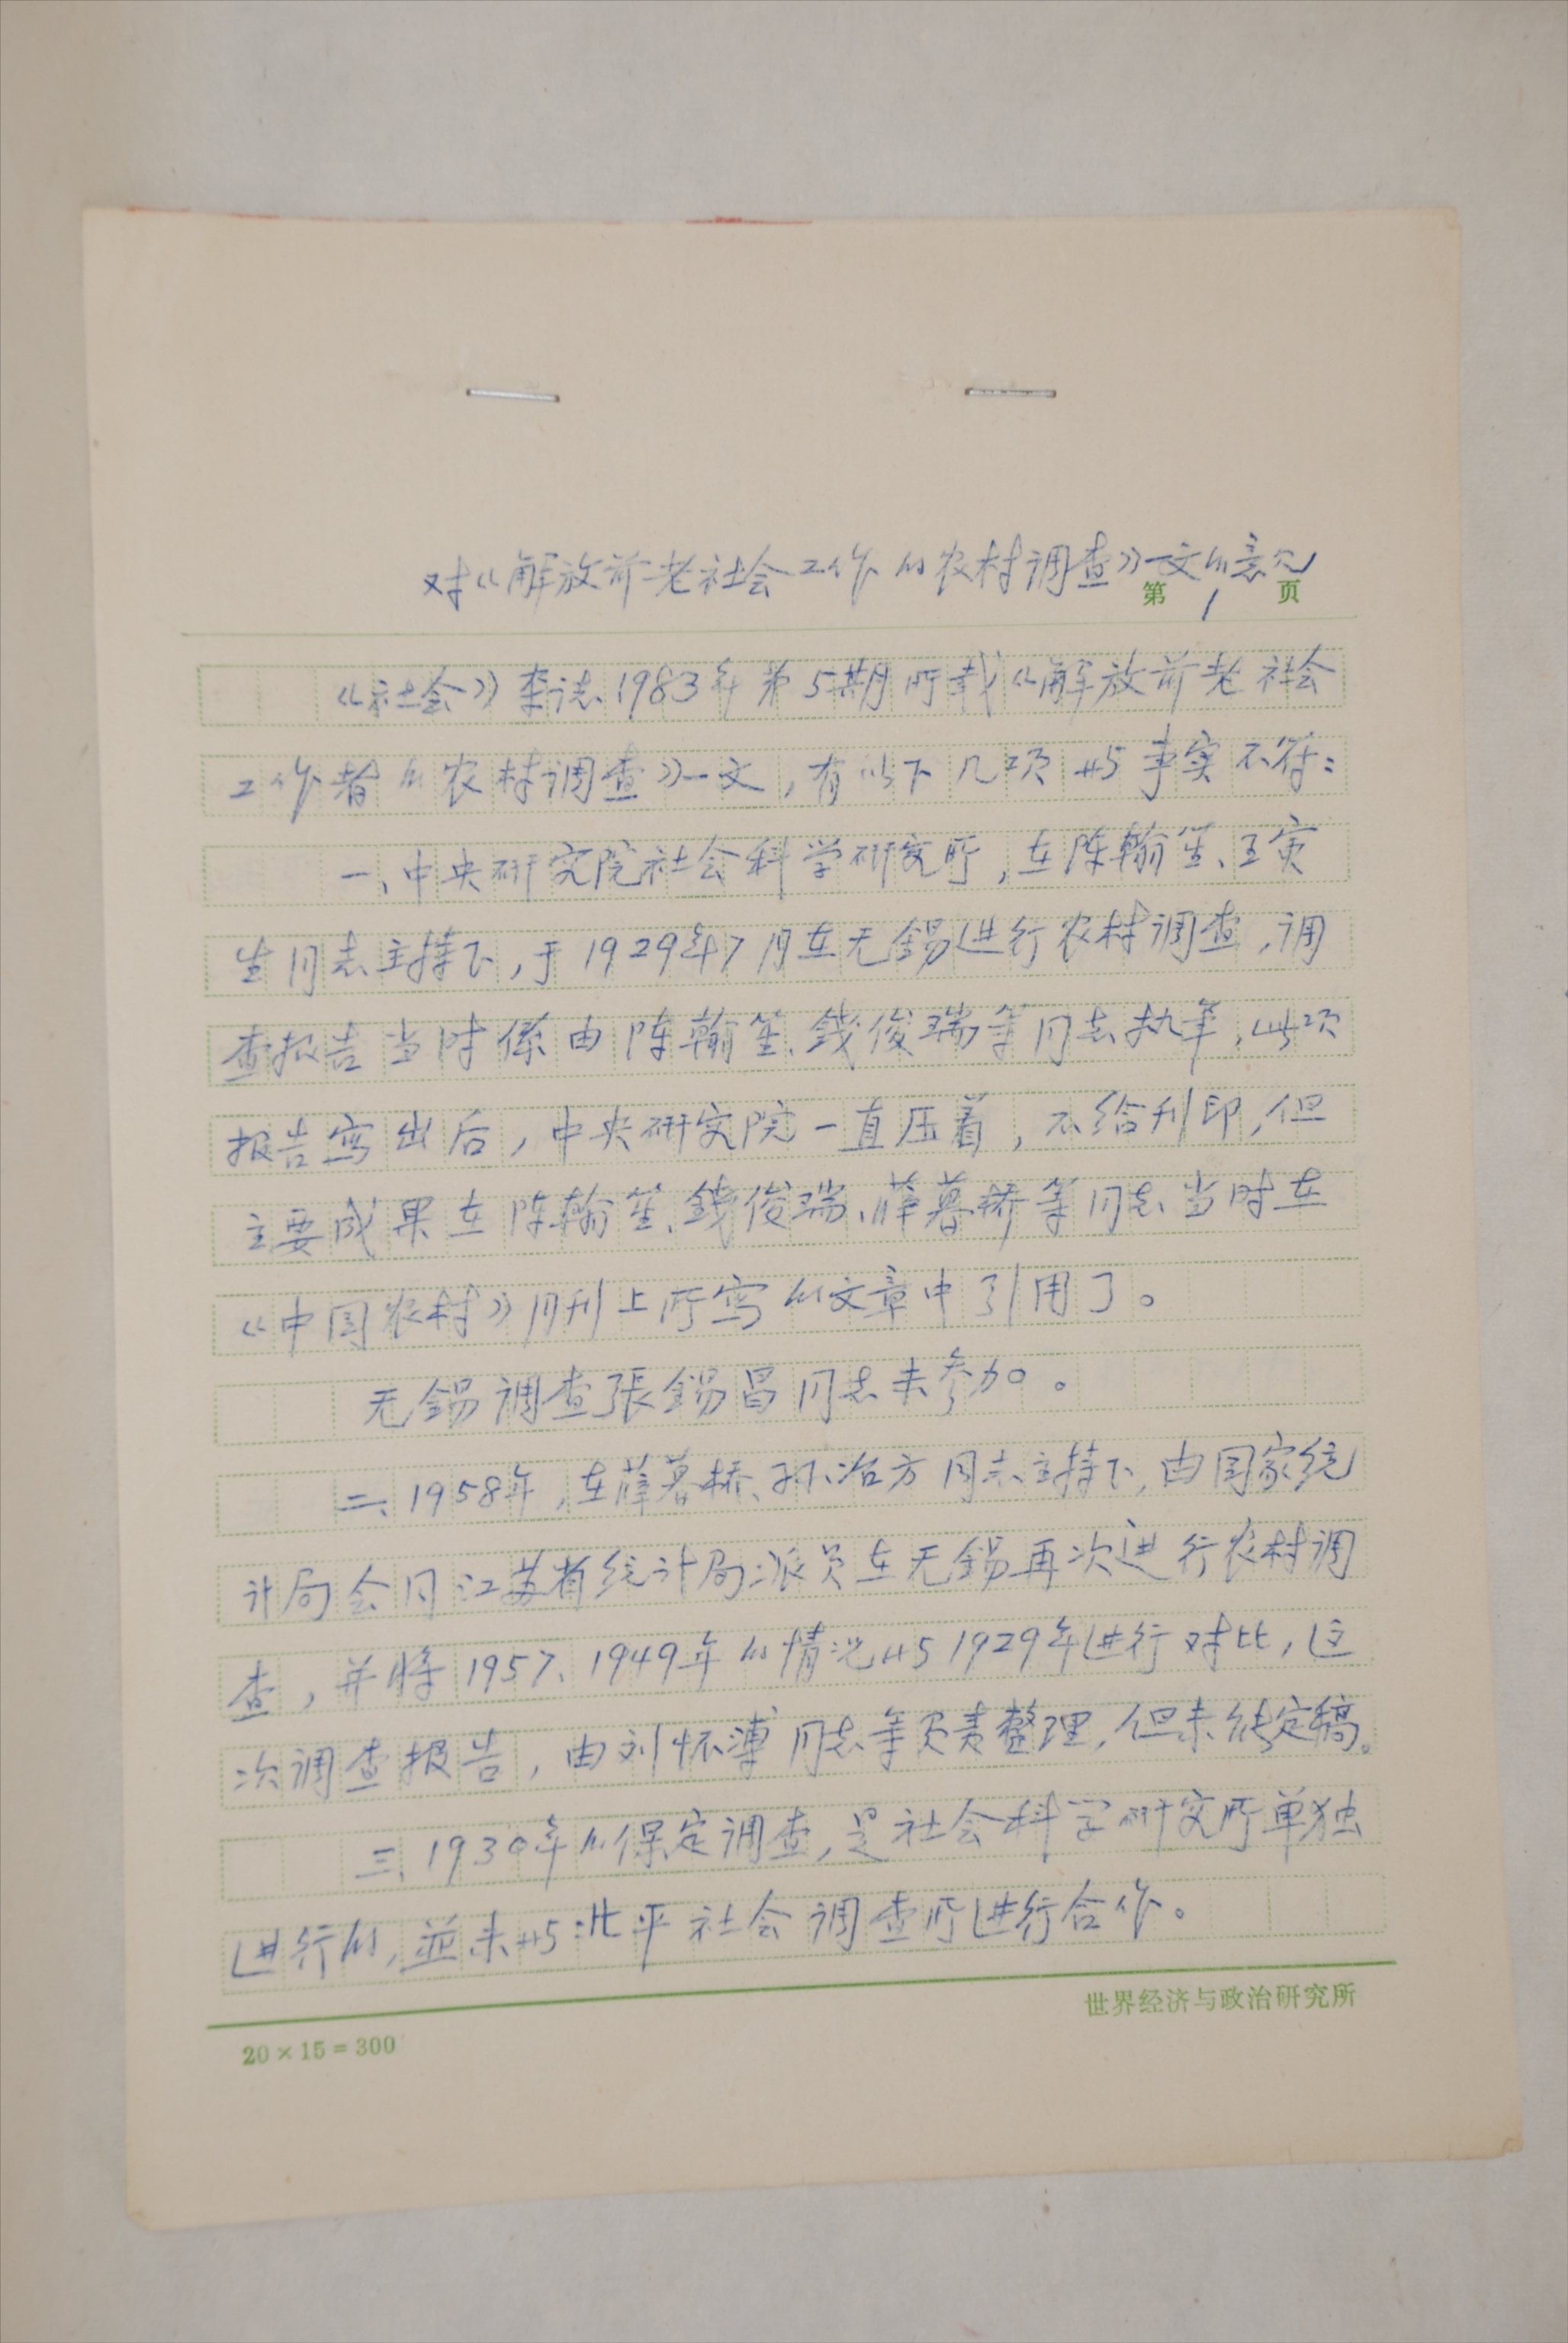 对《解放前老社会工作的农村调查》一文的意见
第1页
《社会》杂志1983年第5期所载《解放前老社会
工作者的农村调查》一文，有以下几项与事实不符：
一、中央研究院社会科学研究所，在陈翰笙、王寅
生同志主持下，于1929年7月在无锡进行农村调查，调
查报告当时係由陈翰笙、钱俊瑞等同志执笔，此项
报告写出后，中央研究院一直压着，不给刊印，但
主要成果在陈翰笙、钱俊瑞、薛暮桥等同志当时在
《中国农村》月刊上所写的文章中引用了。
无锡调查張锡昌同志未参加。
二、1958年，在薛暮桥、孙冶方同志主持下，由国家统
计局会同江苏省统计局派员在无锡再次进行农村调
查，并将1957、1949年的情况与1929年进行对比，这
次调查报告，由刘怀溥同志等负责整理，但未能定稿。
三、1930年的保定调查，是社会科学研究所单独
进行的，並未与北平社会调查所进行合作。
世界经济与政治研究所
20×15=300